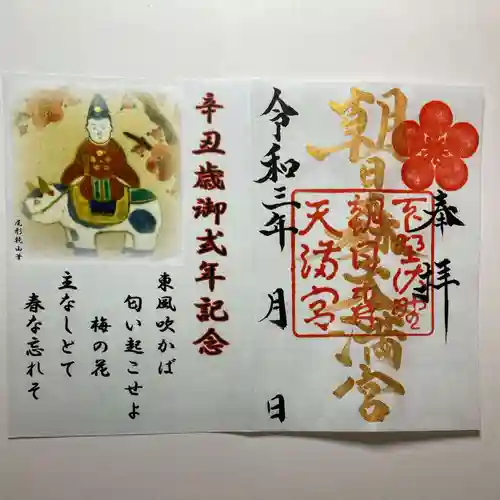 奉拝
朝日森天満宮
朝日森
天満宮
令和三年 月 日
辛丑歳御式年記念
東風吹かば
匂い起こせよ
梅の花
主なしとて
春な忘れそ
尾形乾山筆